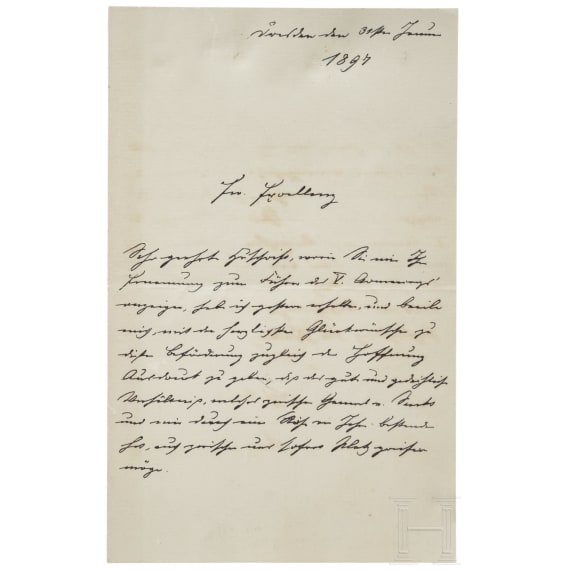 Dresden den 31ten Januar
1897
Ew. Exellenz
Sehr geehrte Zuschrift, worin Sie mir Ihre
Ernennung zum Führer des V. Armeecorps
anzeigen, habe ich gestern erhalten, und beeile
mich, mit den herzlichsten Glückwünschen zu
dieser Beförderung zugleich der Hoffnung
Ausdruck zu geben, daß das gute und gedeihliche
Verhältniß, welches zwischen General v.
und mir durch eine Reihe von Jahren bestanden
hat, auch zwischen uns sofort Platz greifen
möge.
H